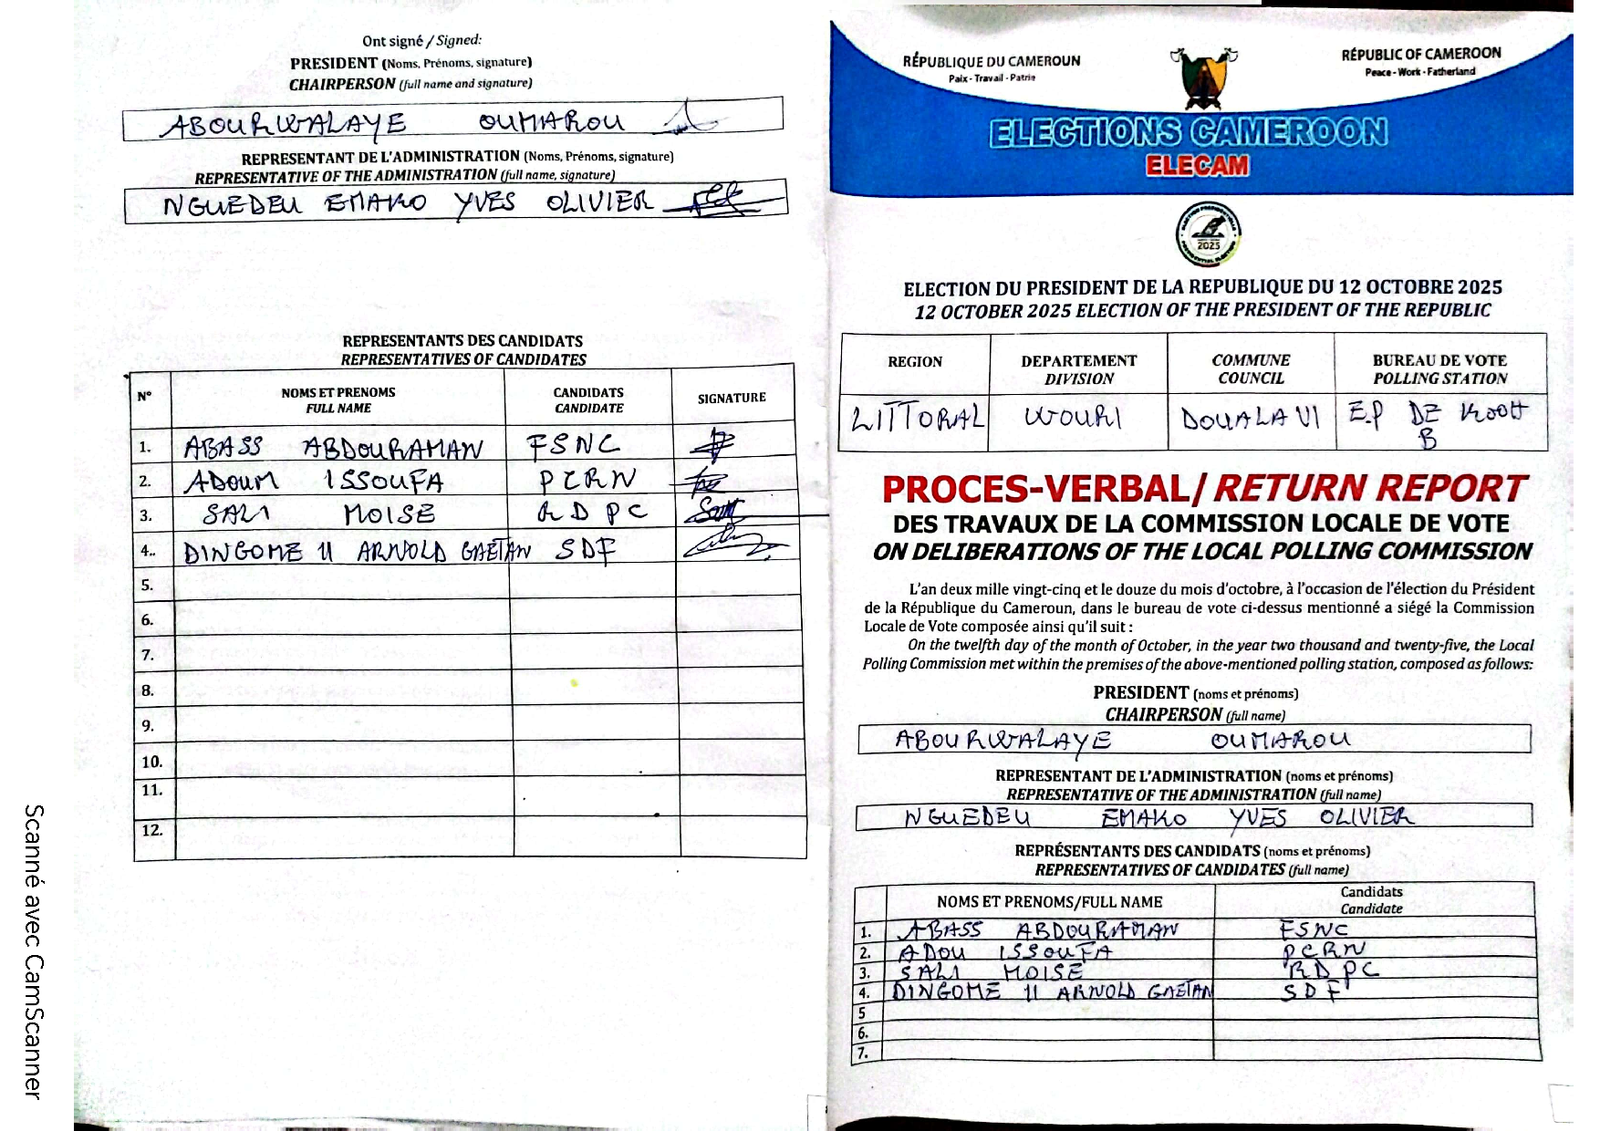 Ont signé / Signed:
PRESIDENT (Noms, Prénoms, signature)
CHAIRPERSON (full name and signature)
ABOURWALAYE OUMAROU
REPRESENTANT DE L'ADMINISTRATION (Noms, Prénoms, signature)
REPRESENTATIVE OF THE ADMINISTRATION (full name, signature)
NGUEDEU EMAKO YVES OLIVIER
REPRESENTANTS DES CANDIDATS
REPRESENTATIVES OF CANDIDATES
N° NOMS ET PRENOMS CANDIDATS SIGNATURE
FULL NAME CANDIDATE
1. ABASS ABDOURAMAN FSNC
2. ADOUM ISSOUFA PCRN
3. SALI MOISE RDPC
4.. DINGOME II ARNOLD GAETAN SDF
5.
6.
7.
8.
9.
10.
11.
12.
Scanné avec CamScanner
RÉPUBLIQUE DU CAMEROUN
Paix - Travail - Patrie
RÉPUBLIC OF CAMEROON
Peace - Work - Fatherland
ELECTIONS CAMEROON
ELECAM
2025
ELECTION DU PRESIDENT DE LA REPUBLIQUE DU 12 OCTOBRE 2025
12 OCTOBER 2025 ELECTION OF THE PRESIDENT OF THE REPUBLIC
REGION DEPARTEMENT COMMUNE BUREAU DE VOTE
DIVISION COUNCIL POLLING STATION
LITTORAL WOURI DOUALA VI E.P DE
B
PROCES-VERBAL/ RETURN REPORT
DES TRAVAUX DE LA COMMISSION LOCALE DE VOTE
ON DELIBERATIONS OF THE LOCAL POLLING COMMISSION
L'an deux mille vingt-cinq et le douze du mois d'octobre, à l'occasion de l'élection du Président
de la République du Cameroun, dans le bureau de vote ci-dessus mentionné a siégé la Commission
Locale de Vote composée ainsi qu'il suit :
On the twelfth day of the month of October, in the year two thousand and twenty-five, the Local
Polling Commission met within the premises of the above-mentioned polling station, composed as follows:
PRESIDENT (noms et prénoms)
CHAIRPERSON (full name)
ABOURWALAYE OUMAROU
REPRESENTANT DE L'ADMINISTRATION (noms et prénoms)
REPRESENTATIVE OF THE ADMINISTRATION (full name)
NGUEDEU EMAKO YVES OLIVIER
REPRÉSENTANTS DES CANDIDATS (noms et prénoms)
REPRESENTATIVES OF CANDIDATES (full name)
NOMS ET PRENOMS/FULL NAME Candidats
Candidate
1. ABASS ABDOURAMAN FSNC
2. ADOU ISSOUFA PCRN
3. SALI MOISE RDPC
4. DINGOME II ARNOLD GAETAN SDF
5
6.
7.